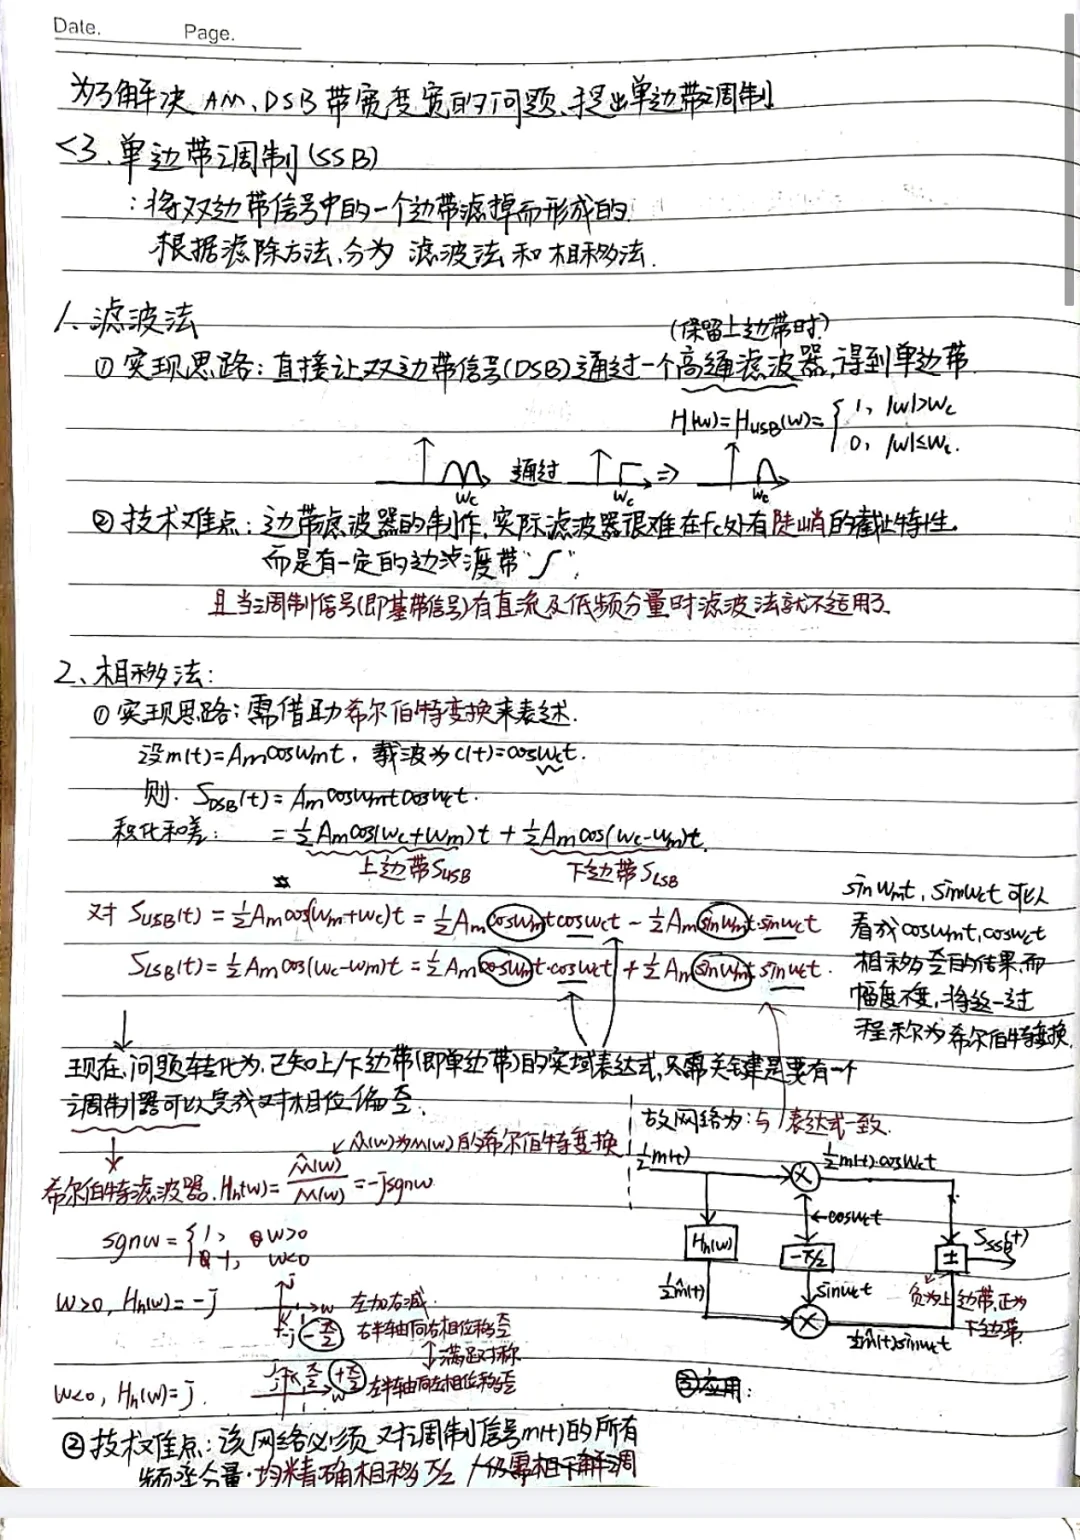 Date. Page.
为了解决AM、DSB带宽度宽的问题,提出单边带调制
<3、单边带调制(SSB)
:将双边带信号中的一个边带滤掉而形成的.
根据滤除方法,分为 滤波法和相移法.
1、滤波法
(保留上边带时)
① 实现思路:直接让双边带信号(DSB)通过一个高通滤波器,得到单边带.
H(w)=H_USB(w)={1, |w|>wc
0, |w|≤wc.
通过 ⇒
wc wc wc
② 技术难点:边带滤波器的制作,实际滤波器很难在fc处有陡峭的截止特性.
而是有一定的过渡带"∫",
且当调制信号(即基带信号)有直流及低频分量时滤波法就不适用了.
2、相移法:
① 实现思路:需借助希尔伯特变换来表述.
设m(t)=Amcoswmt,载波为c(t)=coswct.
则. S_DSB(t)=Amcoswmtcoswct.
积化和差: =½Amcos(wc+wm)t+½Amcos(wc-wm)t.
上边带S_USB 下边带S_LSB
对 S_USB(t)=½Amcos(wm+wc)t=½Amcoswmtcoswct-½Amsinwmt·sinwct
S_LSB(t)=½Amcos(wc-wm)t=½Amcoswmt·coswct+½Amsinwmt·sinwct.
sinwmt,sinwct可以
看成coswmt,coswct
相移π/2的结果,而
幅度不变,将这一过
程称为希尔伯特变换.
现在,问题转化为,已知上/下边带(即单边带)的实域表达式,只需关键是要有一个
调制器可以完成对相位偏差.
M̂(w)为M(w)的希尔伯特变换
希尔伯特滤波器.Hh(w)=M̂(w)/M(w)=-jsgnw
sgnw={1, w>0
-1, w<0
w>0, Hh(w)=-j
左加右减
-j -π/2 右半轴向右相位移π/2
满足对称
w<0, Hh(w)=j.
j π/2 +π/2 左半轴向左相位移π/2
故网络为:与表达式一致.
½m(t) × ½m(t)·coswct
coswct
Hh(w) -π/2 ± S_SSB(t)
½m̂(t) sinwct
负为上边带,正为
下边带.
× ½m̂(t)sinwct
③应用:
② 技术难点:该网络必须对调制信号m(t)的所有
频率分量.均精确相移π/2 /仍需相干解调